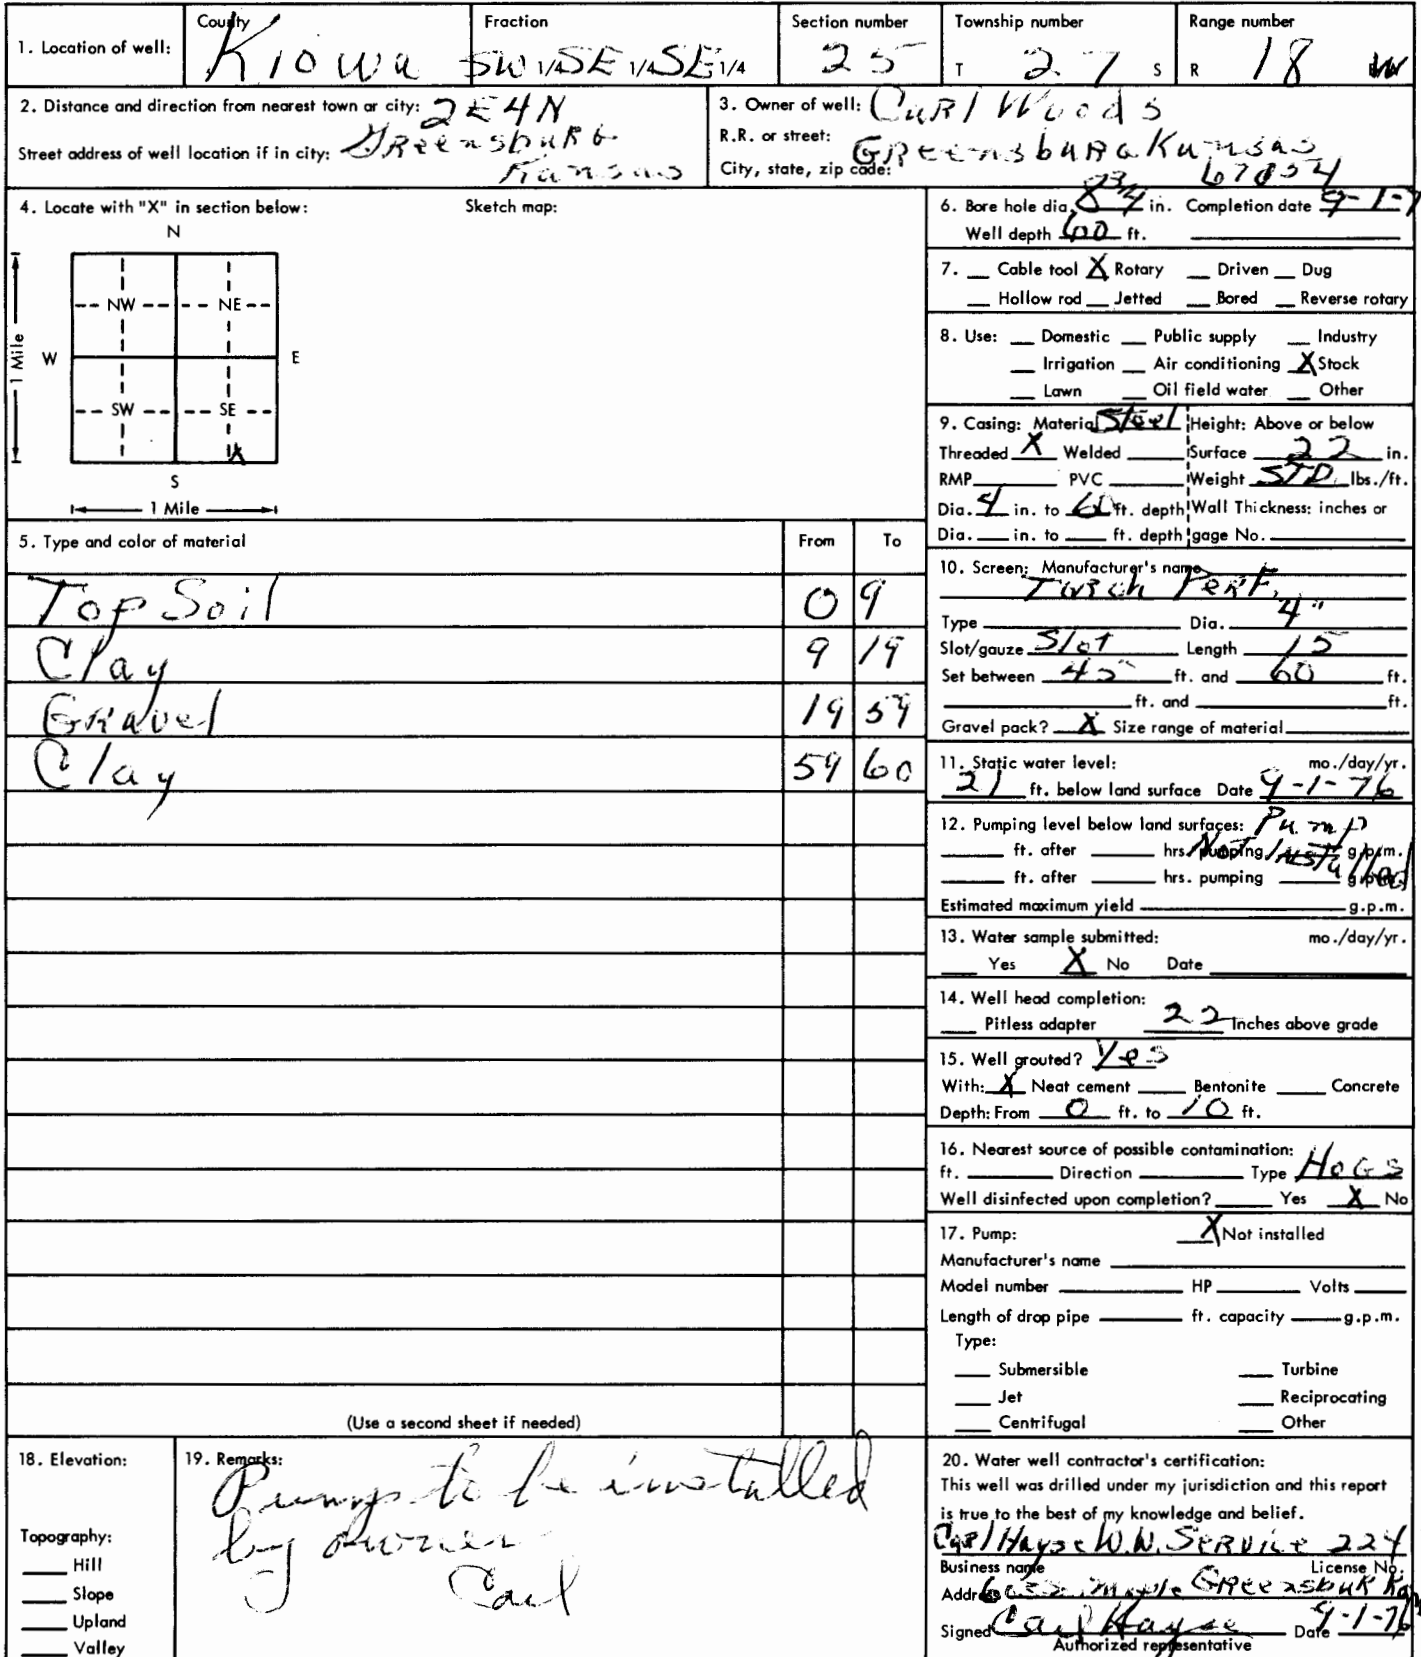 1. Location of well: County Kiowa Fraction SW 1/4 SE 1/4 SE 1/4 Section number 25 Township number T 27 S Range number R 18 W
2. Distance and direction from nearest town or city: 2E4N
Street address of well location if in city: Greensburg
Kansas
3. Owner of well: Carl Woods
R.R. or street:
City, state, zip code: Greensburg Kansas
67054
4. Locate with "X" in section below: Sketch map:
N
NW NE
W E
1 Mile
SW SE
X
S
1 Mile
5. Type and color of material From To
Top Soil 0 9
Clay 9 19
Gravel 19 59
Clay 59 60
(Use a second sheet if needed)
6. Bore hole dia. 8 3/4 in. Completion date 9-1-7
Well depth 60 ft.
7. __ Cable tool X Rotary __ Driven __ Dug
__ Hollow rod __ Jetted __ Bored __ Reverse rotary
8. Use: __ Domestic __ Public supply __ Industry
__ Irrigation __ Air conditioning X Stock
__ Lawn __ Oil field water __ Other
9. Casing: Material Steel Height: Above or below
Threaded X Welded ____ Surface 22 in.
RMP ____ PVC ____ Weight STD. lbs./ft.
Dia. 4 in. to 60 ft. depth Wall Thickness: inches or
Dia. __ in. to __ ft. depth gage No. ____
10. Screen: Manufacturer's name
Torch Perf.
Type ____ Dia. 4"
Slot/gauze Slot Length 15
Set between 45 ft. and 60 ft.
____ ft. and ____ ft.
Gravel pack? X Size range of material ____
11. Static water level: mo./day/yr.
21 ft. below land surface Date 9-1-76
12. Pumping level below land surfaces: Pump
____ ft. after ____ hrs. pumping Not Installed g.p.m.
____ ft. after ____ hrs. pumping ____ g.p.m.
Estimated maximum yield ____ g.p.m.
13. Water sample submitted: mo./day/yr.
__ Yes X No Date ____
14. Well head completion:
__ Pitless adapter 22 Inches above grade
15. Well grouted? Yes
With: X Neat cement ____ Bentonite ____ Concrete
Depth: From 0 ft. to 10 ft.
16. Nearest source of possible contamination:
ft. ____ Direction ____ Type HoGS
Well disinfected upon completion? ____ Yes X No
17. Pump: X Not installed
Manufacturer's name ____
Model number ____ HP ____ Volts ____
Length of drop pipe ____ ft. capacity ____ g.p.m.
Type:
__ Submersible __ Turbine
__ Jet __ Reciprocating
__ Centrifugal __ Other
18. Elevation:
Topography:
__ Hill
__ Slope
__ Upland
__ Valley
19. Remarks:
Pump to be installed
by owner
Carl
20. Water well contractor's certification:
This well was drilled under my jurisdiction and this report
is true to the best of my knowledge and belief.
Carl Hayse W.W. Service 224
Business name License No.
Address Maple Greensburg
Signed Carl Hayse Date 9-1-76
Authorized representative